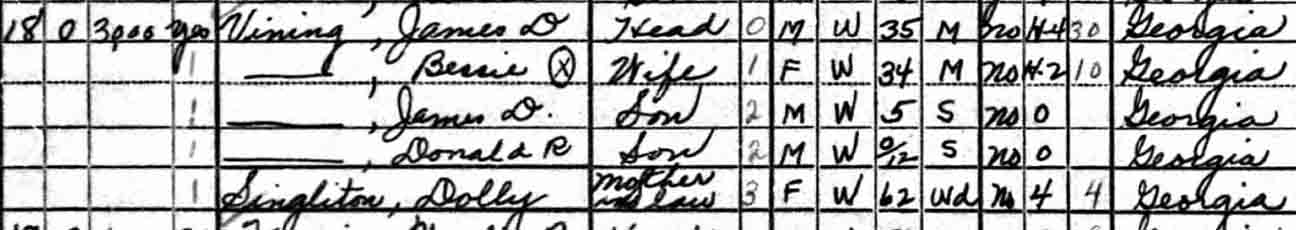 18 0 3000 yes Vining, James D Head 0 M W 35 M no H-4 30 Georgia
1 ——, Bessie Ⓧ Wife 1 F W 34 M no H-2 10 Georgia
1 ——, James D. Son 2 M W 5 S no 0 Georgia
1 ——, Donald R Son 2 M W 0/12 S no 0 Georgia
1 Singliton, Dolly mother in law 3 F W 62 Wd no 4 4 Georgia